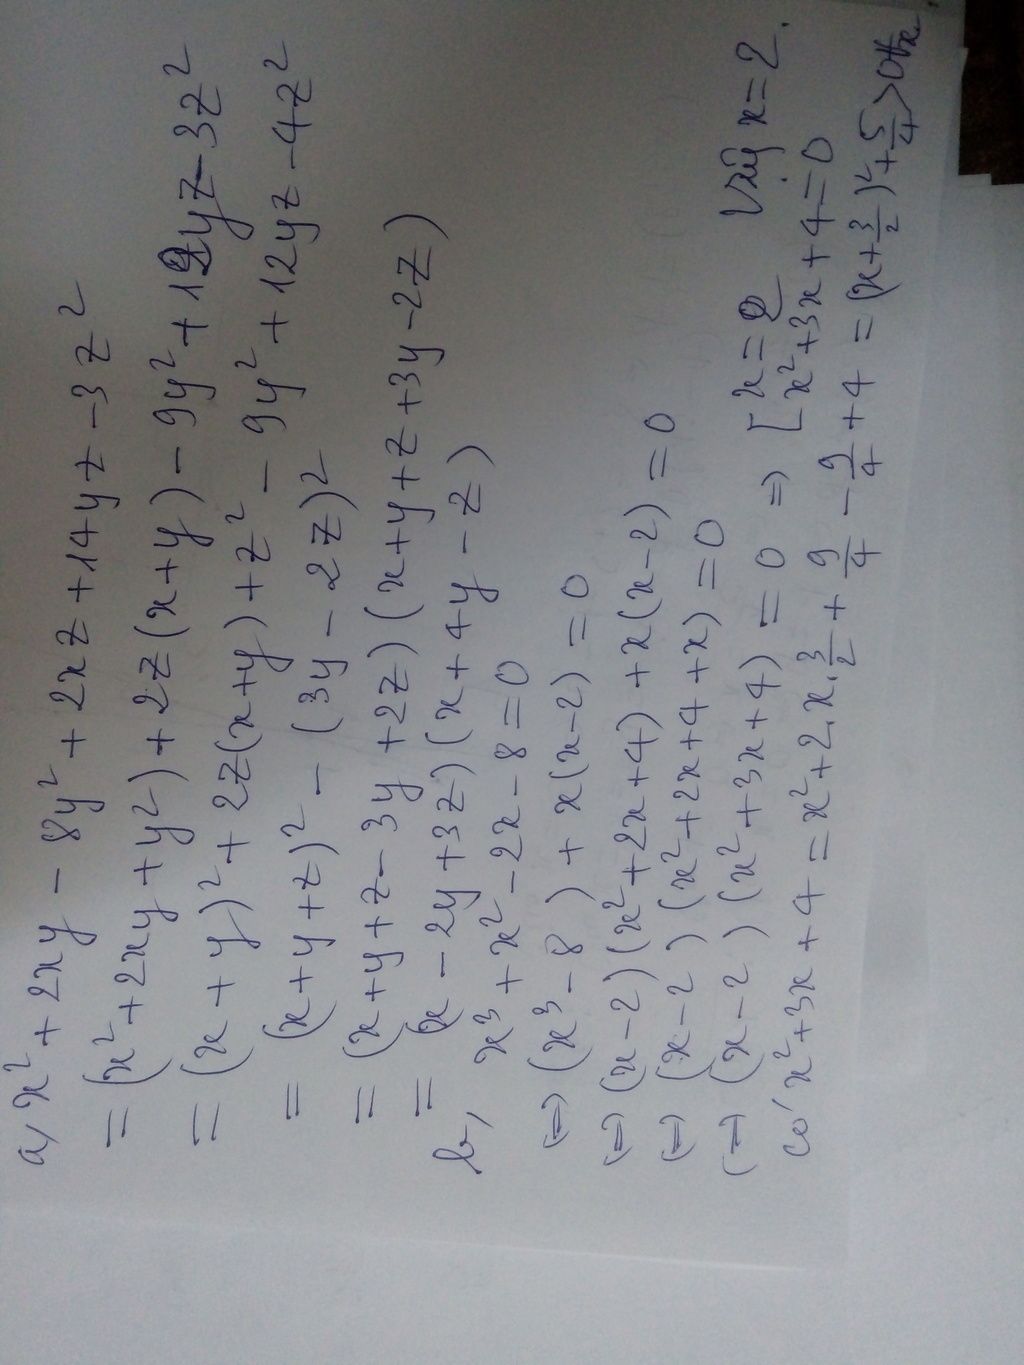 a, x² + 2xy - 8y² + 2xz + 14yz - 3z²
= (x² + 2xy + y²) + 2z(x + y) - 9y² + 12yz - 3z²
= (x + y)² + 2z(x+y) + z² - 9y² + 12yz - 4z²
= (x + y + z)² - (3y - 2z)²
= (x + y + z - 3y + 2z)(x + y + z + 3y - 2z)
= (x - 2y + 3z)(x + 4y - z)
b, x³ + x² - 2x - 8 = 0
⇔ (x³ - 8) + x(x - 2) = 0
⇔ (x - 2)(x² + 2x + 4) + x(x - 2) = 0
⇔ (x - 2)(x² + 2x + 4 + x) = 0
⇔ (x - 2)(x² + 3x + 4) = 0 ⇒ [ x = 2 Vậy x = 2.
x² + 3x + 4 = 0
có x² + 3x + 4 = x² + 2.x.3/2 + 9/4 - 9/4 + 4 = (x + 3/2)² + 5/4 > 0